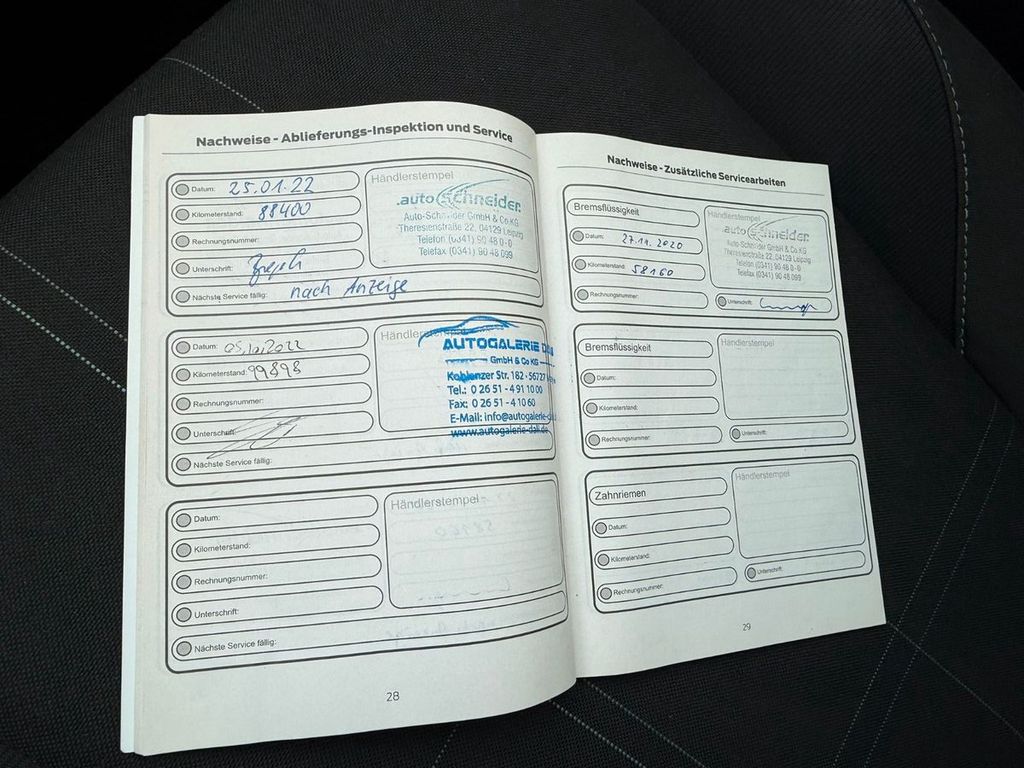 Nachweise - Ablieferungs-Inspektion und Service
Datum: 25.01.22
Kilometerstand: 88400
Rechnungsnummer:
Unterschrift:
Nächste Service fällig: nach Anzeige
Händlerstempel
.auto Schneider.
Auto-Schneider GmbH & Co.KG
Theresienstraße 22, 04129 Leipzig
Telefon (0341) 90 48 0-0
Telefax (0341) 90 48 099
Datum: 05.10.2022
Kilometerstand: 99898
Rechnungsnummer:
Unterschrift:
Nächste Service fällig:
Händlerstempel
AUTOGALERIE
GmbH & Co KG
Koblenzer Str. 182 · 56727
Tel.: 0 26 51 - 4 91 10 00
Fax: 0 26 51 - 4 10 60
E-Mail: info@autogalerie-dali.de
www.autogalerie-dali.de
Datum:
Kilometerstand:
Rechnungsnummer:
Unterschrift:
Nächste Service fällig:
Händlerstempel
28
Nachweise - Zusätzliche Servicearbeiten
Bremsflüssigkeit
Datum: 27.11.2020
Kilometerstand: 58160
Rechnungsnummer:
Händlerstempel
auto Schneider.
Auto-Schneider GmbH & Co.KG
Theresienstraße 22, 04129 Leipzig
Telefon (0341) 90 48 0-0
Telefax (0341) 90 48 099
Unterschrift:
Bremsflüssigkeit
Datum:
Kilometerstand:
Rechnungsnummer:
Händlerstempel
Unterschrift:
Zahnriemen
Datum:
Kilometerstand:
Rechnungsnummer:
Händlerstempel
Unterschrift:
29